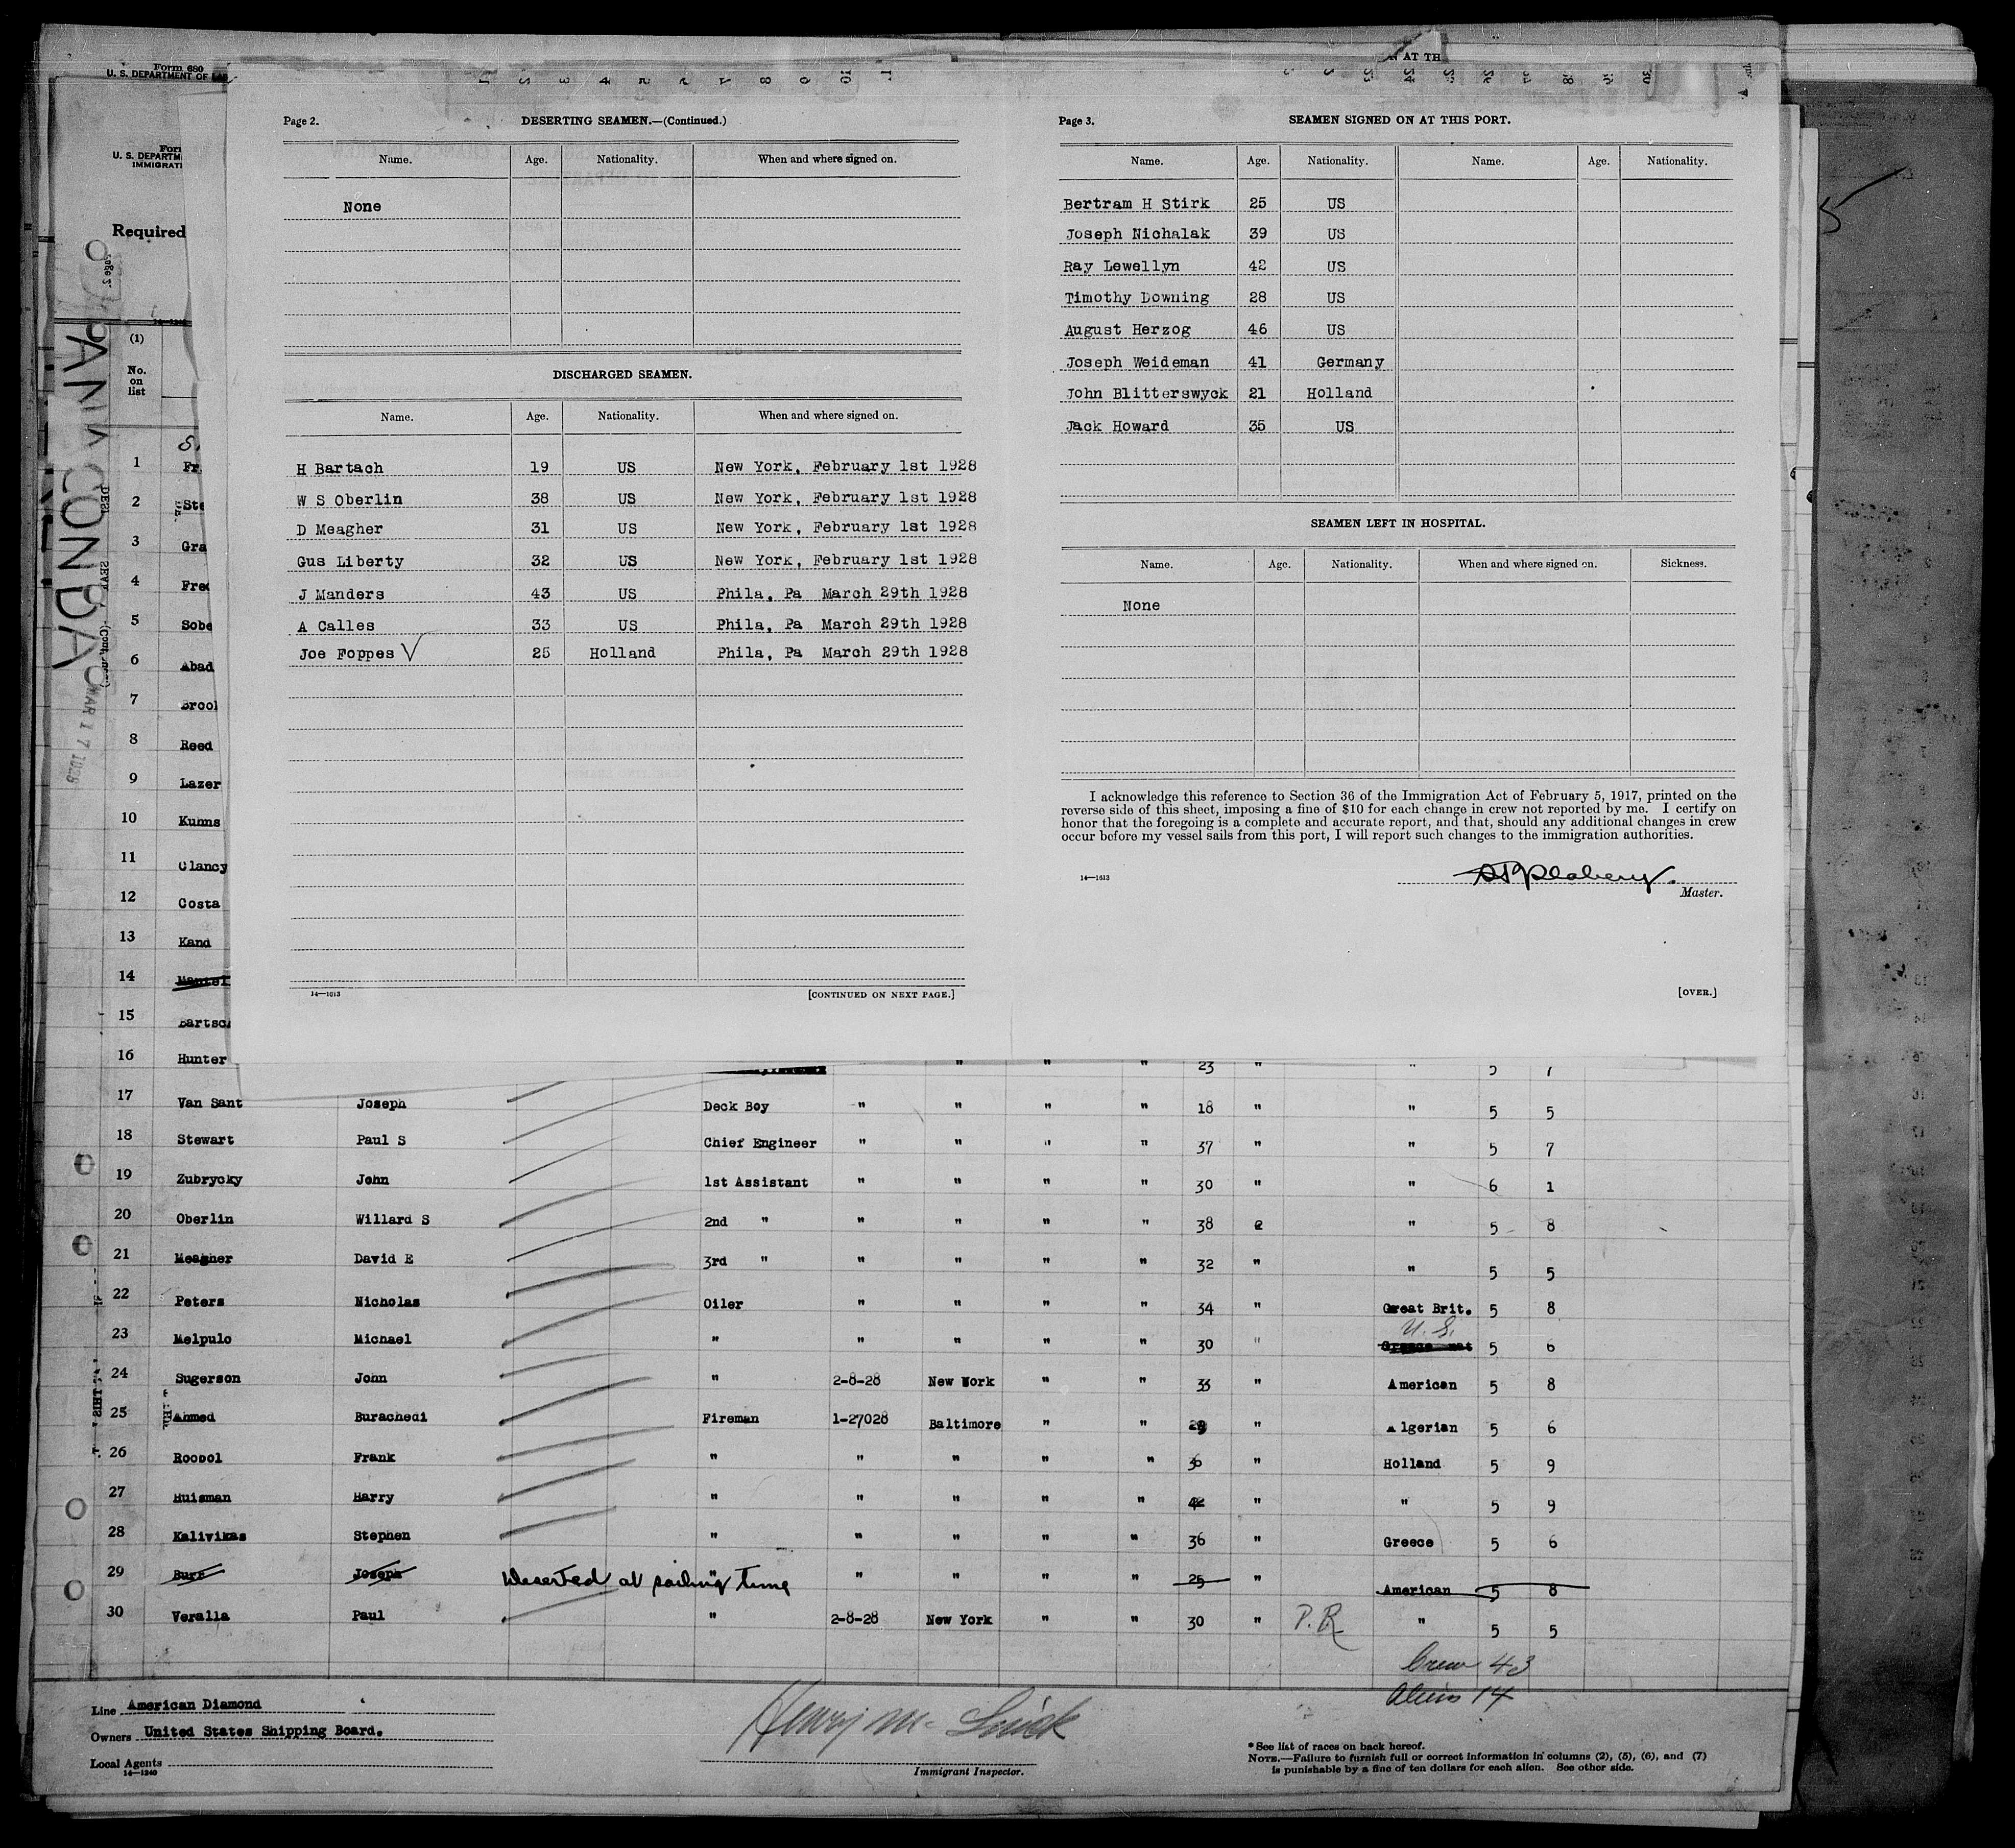 Form 680
U. S. DEPARTMENT OF LAB
AT TH
Form
U. S. DEPARTM
IMMIGRATI
Required
ANACONDA
MAR 17 1928
(1)
No.
on
list
Page 2.
DESERTING SEAMEN.—(Continued.)
Name. Age. Nationality. When and where signed on.
None
DISCHARGED SEAMEN.
Name. Age. Nationality. When and where signed on.
H Bartach 19 US New York, February 1st 1928
W S Oberlin 38 US New York, February 1st 1928
D Meagher 31 US New York, February 1st 1928
Gus Liberty 32 US New York, February 1st 1928
J Manders 43 US Phila, Pa March 29th 1928
A Calles 33 US Phila, Pa March 29th 1928
Joe Foppes √ 25 Holland Phila, Pa March 29th 1928
14—1613
[CONTINUED ON NEXT PAGE.]
Page 3.
SEAMEN SIGNED ON AT THIS PORT.
Name. Age. Nationality. Name. Age. Nationality.
Bertram H Stirk 25 US
Joseph Nichalak 39 US
Ray Lewellyn 42 US
Timothy Downing 28 US
August Herzog 46 US
Joseph Weideman 41 Germany
John Blitterswyck 21 Holland
Jack Howard 35 US
SEAMEN LEFT IN HOSPITAL.
Name. Age. Nationality. When and where signed on. Sickness.
None
I acknowledge this reference to Section 36 of the Immigration Act of February 5, 1917, printed on the
reverse side of this sheet, imposing a fine of $10 for each change in crew not reported by me. I certify on
honor that the foregoing is a complete and accurate report, and that, should any additional changes in crew
occur before my vessel sails from this port, I will report such changes to the immigration authorities.
14—1613
Master.
[OVER.]
1 Fr
2 Ste
3 Gra
4 Fred
5 Sobe
6 Abad
7 Brool
8 Reed
9 Lazer
10 Kunns
11 Clancy
12 Costa
13 Kand
14 Mantel
15 Bartsc
16 Hunter " " " 23 " " 5 7
17 Van Sant Joseph Deck Boy " " " " 18 " " 5 5
18 Stewart Paul S Chief Engineer " " " " 37 " " 5 7
19 Zubrycky John 1st Assistant " " " " 30 " " 6 1
20 Oberlin Willard S 2nd " " " " " 38 " " 5 8
21 Meagher David E 3rd " " " " " 32 " " 5 5
22 Peters Nicholas Oiler " " " " 34 " Great Brit. 5 8
U. S.
23 Melpulo Michael " " " " " 30 " Greece 5 6
24 Sugerson John " 2-8-28 New York " " 33 " American 5 8
25 Ahmed Burachedi Fireman 1-27028 Baltimore " " 29 " Algerian 5 6
26 Roobol Frank " " " " " 36 " Holland 5 9
27 Huisman Harry " " " " " 42 " " 5 9
28 Kalivikas Stephen " " " " " 36 " Greece 5 6
29 Burr Joseph Deserted at sailing time " " " " " 25 " American 5 8
30 Veralla Paul " 2-8-28 New York " " 30 " P.R. " 5 5
Crew 43
Aliens 14
Line American Diamond
Owners United States Shipping Board.
Local Agents
14—1240
Immigrant Inspector.
* See list of races on back hereof.
NOTE.—Failure to furnish full or correct information in columns (2), (5), (6), and (7)
is punishable by a fine of ten dollars for each alien. See other side.